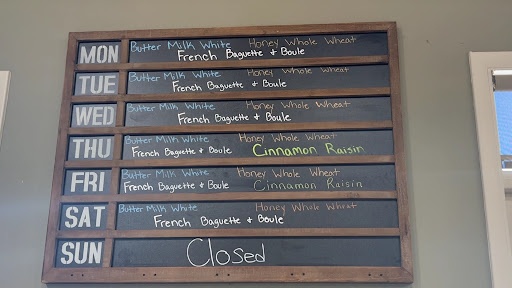 MON Butter Milk White Honey Whole Wheat
French Baguette & Boule
TUE Butter Milk White Honey Whole Wheat
French Baguette & Boule
WED Butter Milk White Honey Whole Wheat
French Baguette & Boule
THU Butter Milk White Honey Whole Wheat
French Baguette & Boule Cinnamon Raisin
FRI Butter Milk White Honey Whole Wheat
French Baguette & Boule Cinnamon Raisin
SAT Butter Milk White Honey Whole Wheat
French Baguette & Boule
SUN Closed